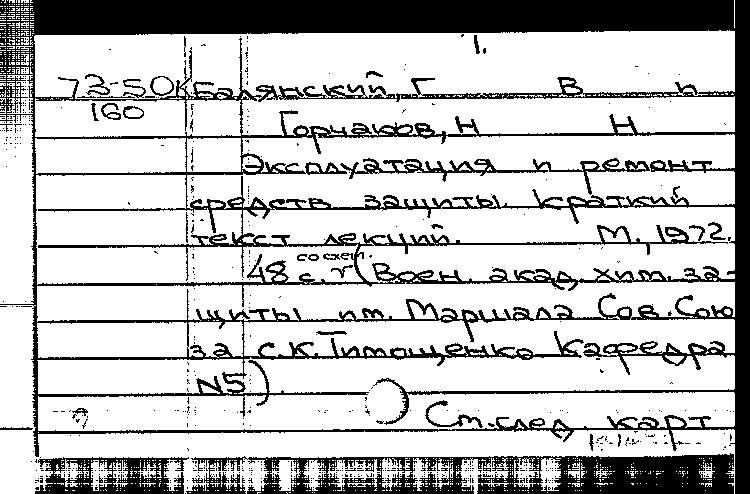 1.
73-50К Балянский, Г В и
160
Горчаков, Н Н
Эксплуатация и ремонт
средств защиты. Краткий
текст лекций. М., 1972.
48 с. со схем. (Воен. акад. хим. за-
щиты им. Маршала Сов. Сою
за С.К. Тимощенко Кафедра
N5).
См. след. карт